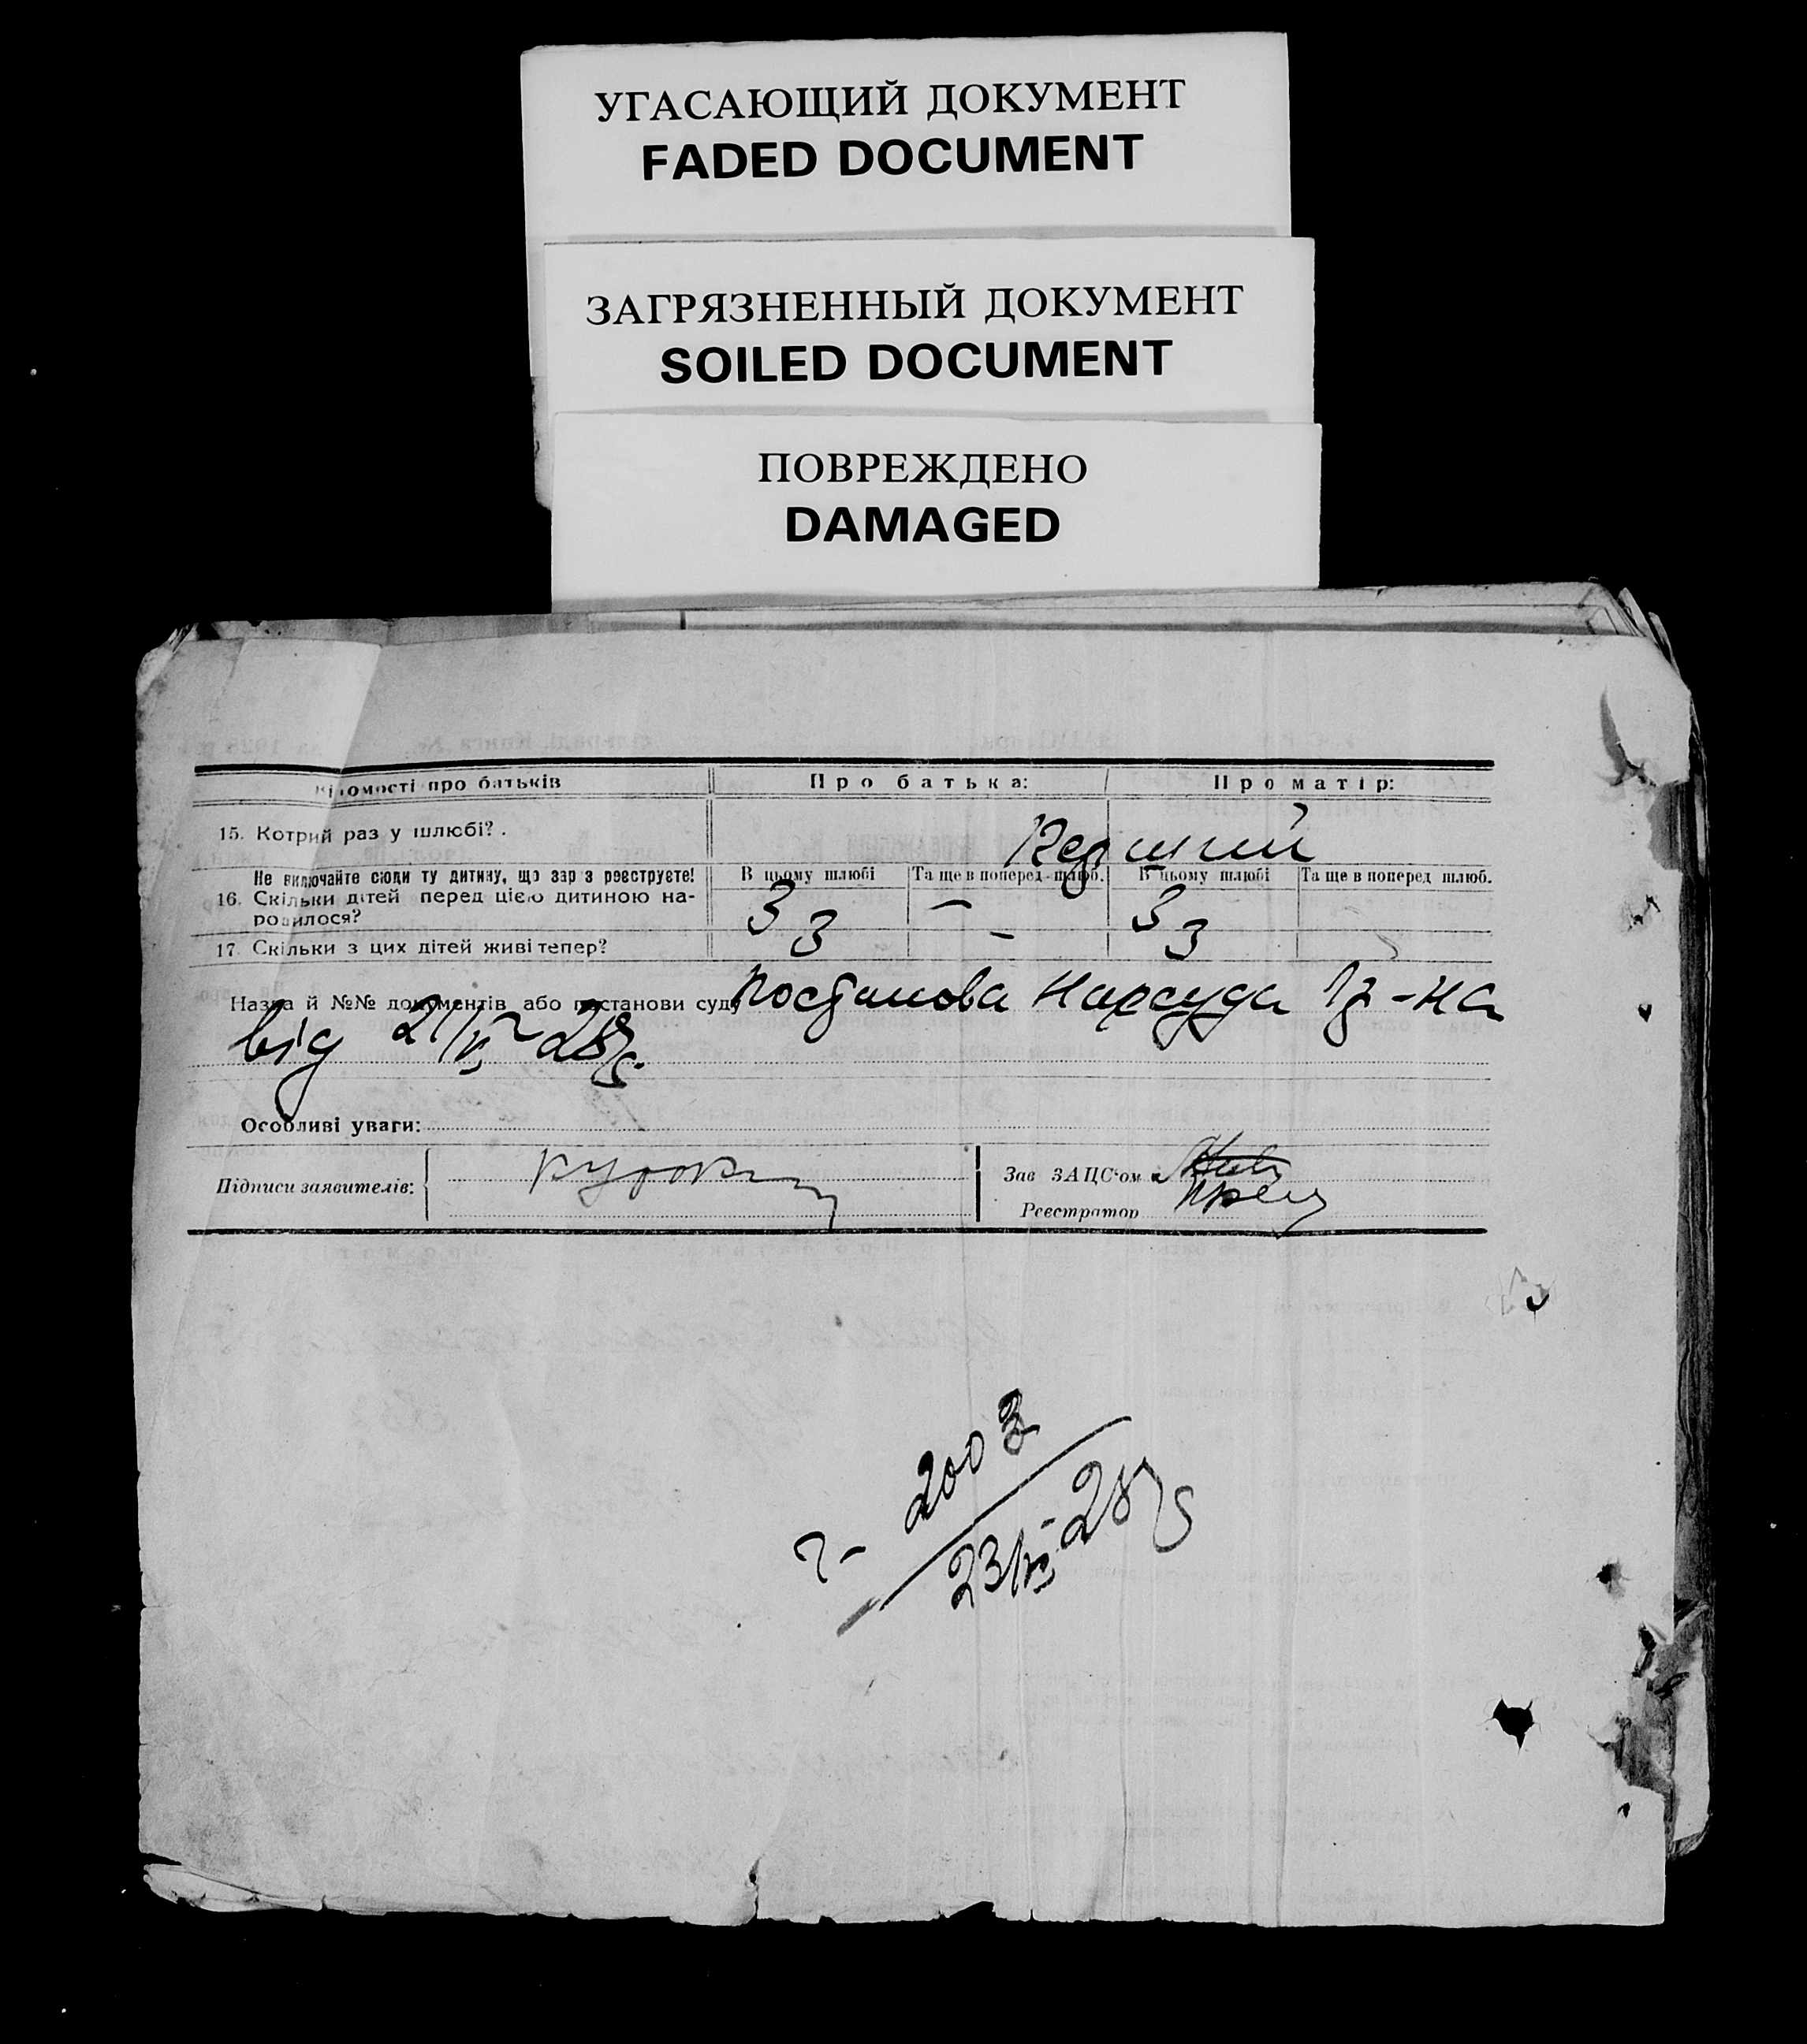 УГАСАЮЩИЙ ДОКУМЕНТ
FADED DOCUMENT
ЗАГРЯЗНЕННЫЙ ДОКУМЕНТ
SOILED DOCUMENT
ПОВРЕЖДЕНО
DAMAGED
Відомості про батьків Про батька: Про матір:
15. Котрий раз у шлюбі? . Перший
Не включайте сюди ту дитину, що зараз реєструєте! В цьому шлюбі Та ще в поперед. шлюб. В цьому шлюбі Та ще в поперед шлюб.
16. Скільки дітей перед цією дитиною на-
родилося? 3 – 3
17. Скільки з цих дітей живі тепер? 3 – 3
Назва й №№ документів або постанови суду Постанова Нарсуда 1 р-на
від 21/VI-28р.
Особливі уваги:
Підписи заявителів: Зав ЗАЦС'ом
Реєстратор
2003
23/VI-28р